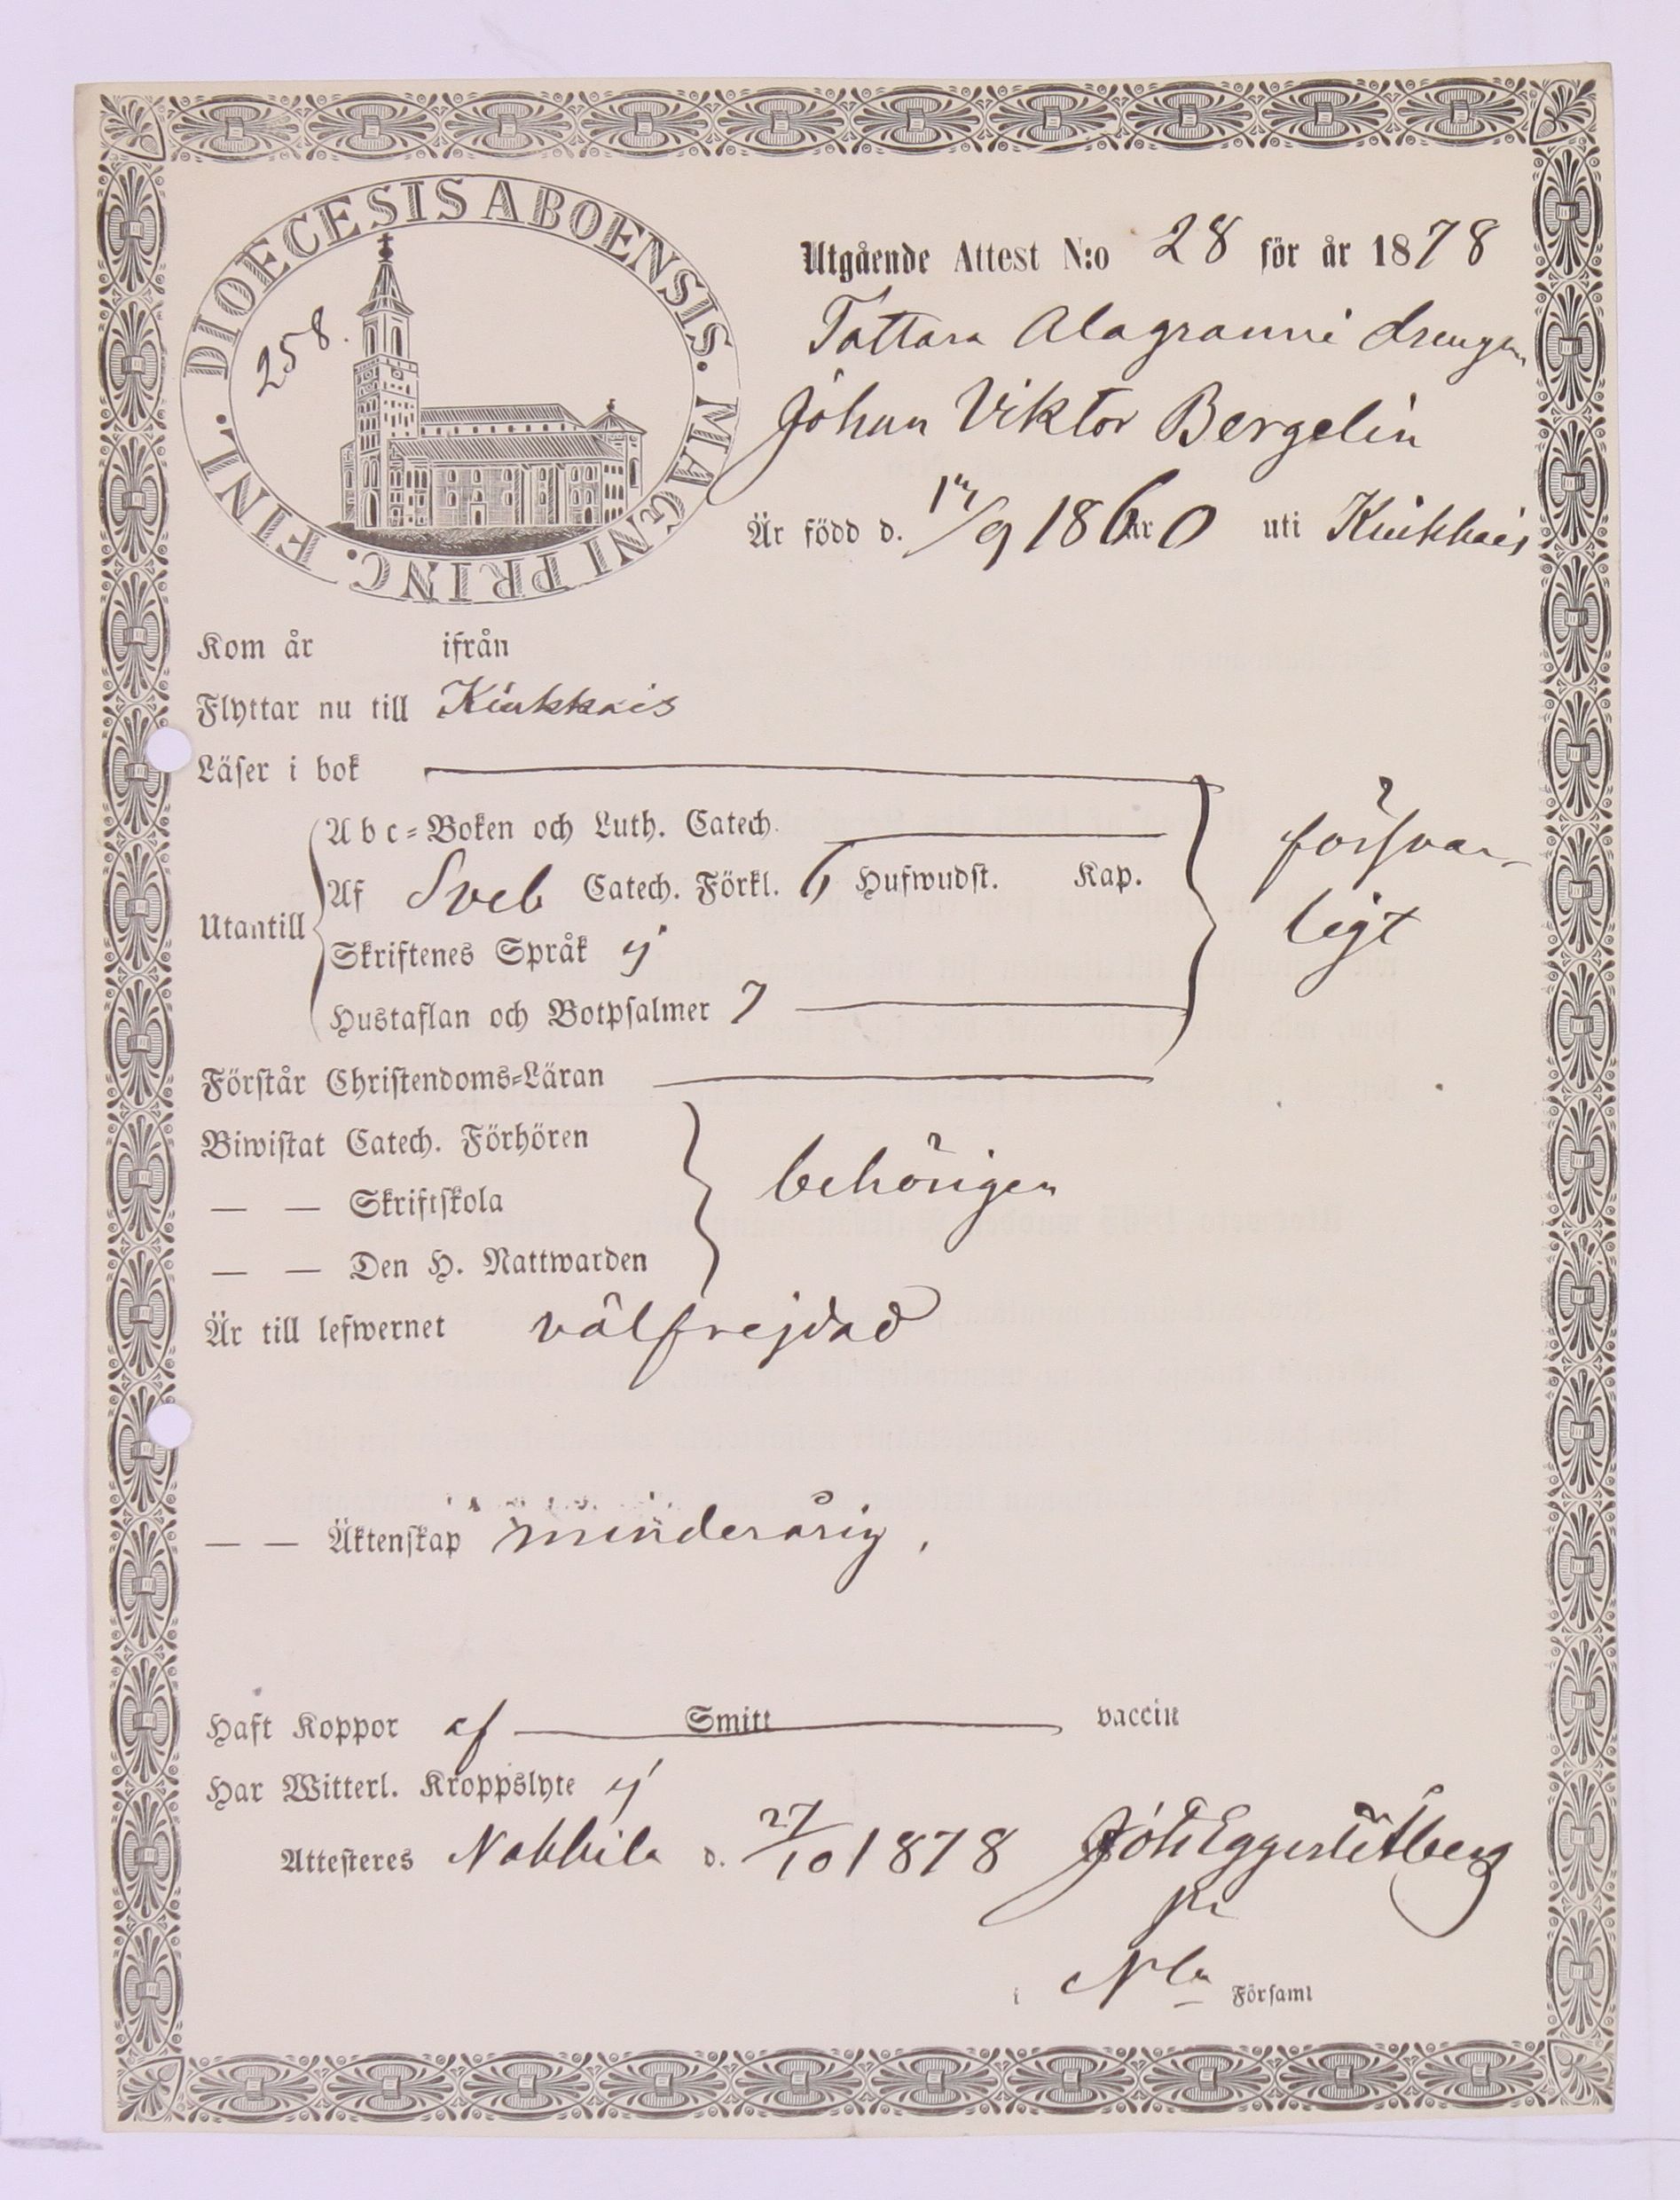 DIOECESIS ABOENSIS. MAGNI PRINC. FINL.
258.
Utgående Attest N:o 28 för år 1878
Tattara Alagranni drengen
Johan Viktor Bergelin
Är född d. 17/9 1860 uti Kiukkais
Kom år ifrån
Flyttar nu till Kiukkais
Läser i bok
Abc-Boken och Luth. Catech.
Utantill
Af Sveb Catech. Förkl. 6 Hufwudst. Kap.
Skriftenes Språk ej
Hustaflan och Botpsalmer 7
försvar-
ligt
Förstår Christendoms-Läran
Biwistat Catech. Förhören
— — Skriftskola
behörigen
— — Den H. Nattwarden
Är till lefwernet välfrejdad
— — Äktenskap minderårig.
Haft Koppor af Smitt vaccin
Har Witterl. Kroppslyte ej
Attesteres Nakkila d. 27/10 1878
i Nla Församl